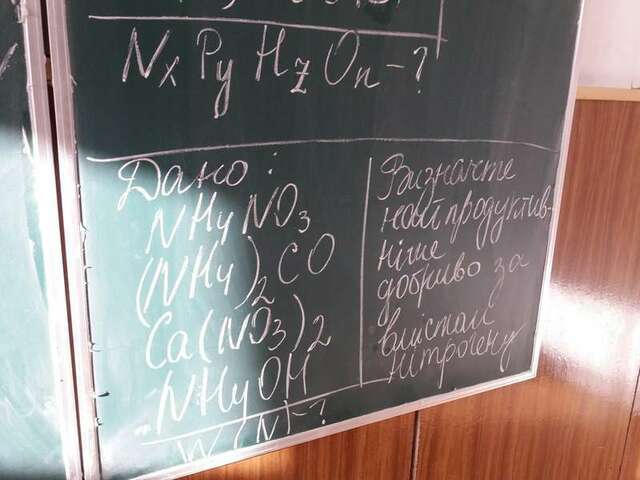 NxPyHzOn-?
Дано:
NH4NO3
(NH4)2CO
Ca(NO3)2
NH4OH
W(N)-?
Визначте
найпродуктив-
ніше
добриво за
вмістом
нітрогену